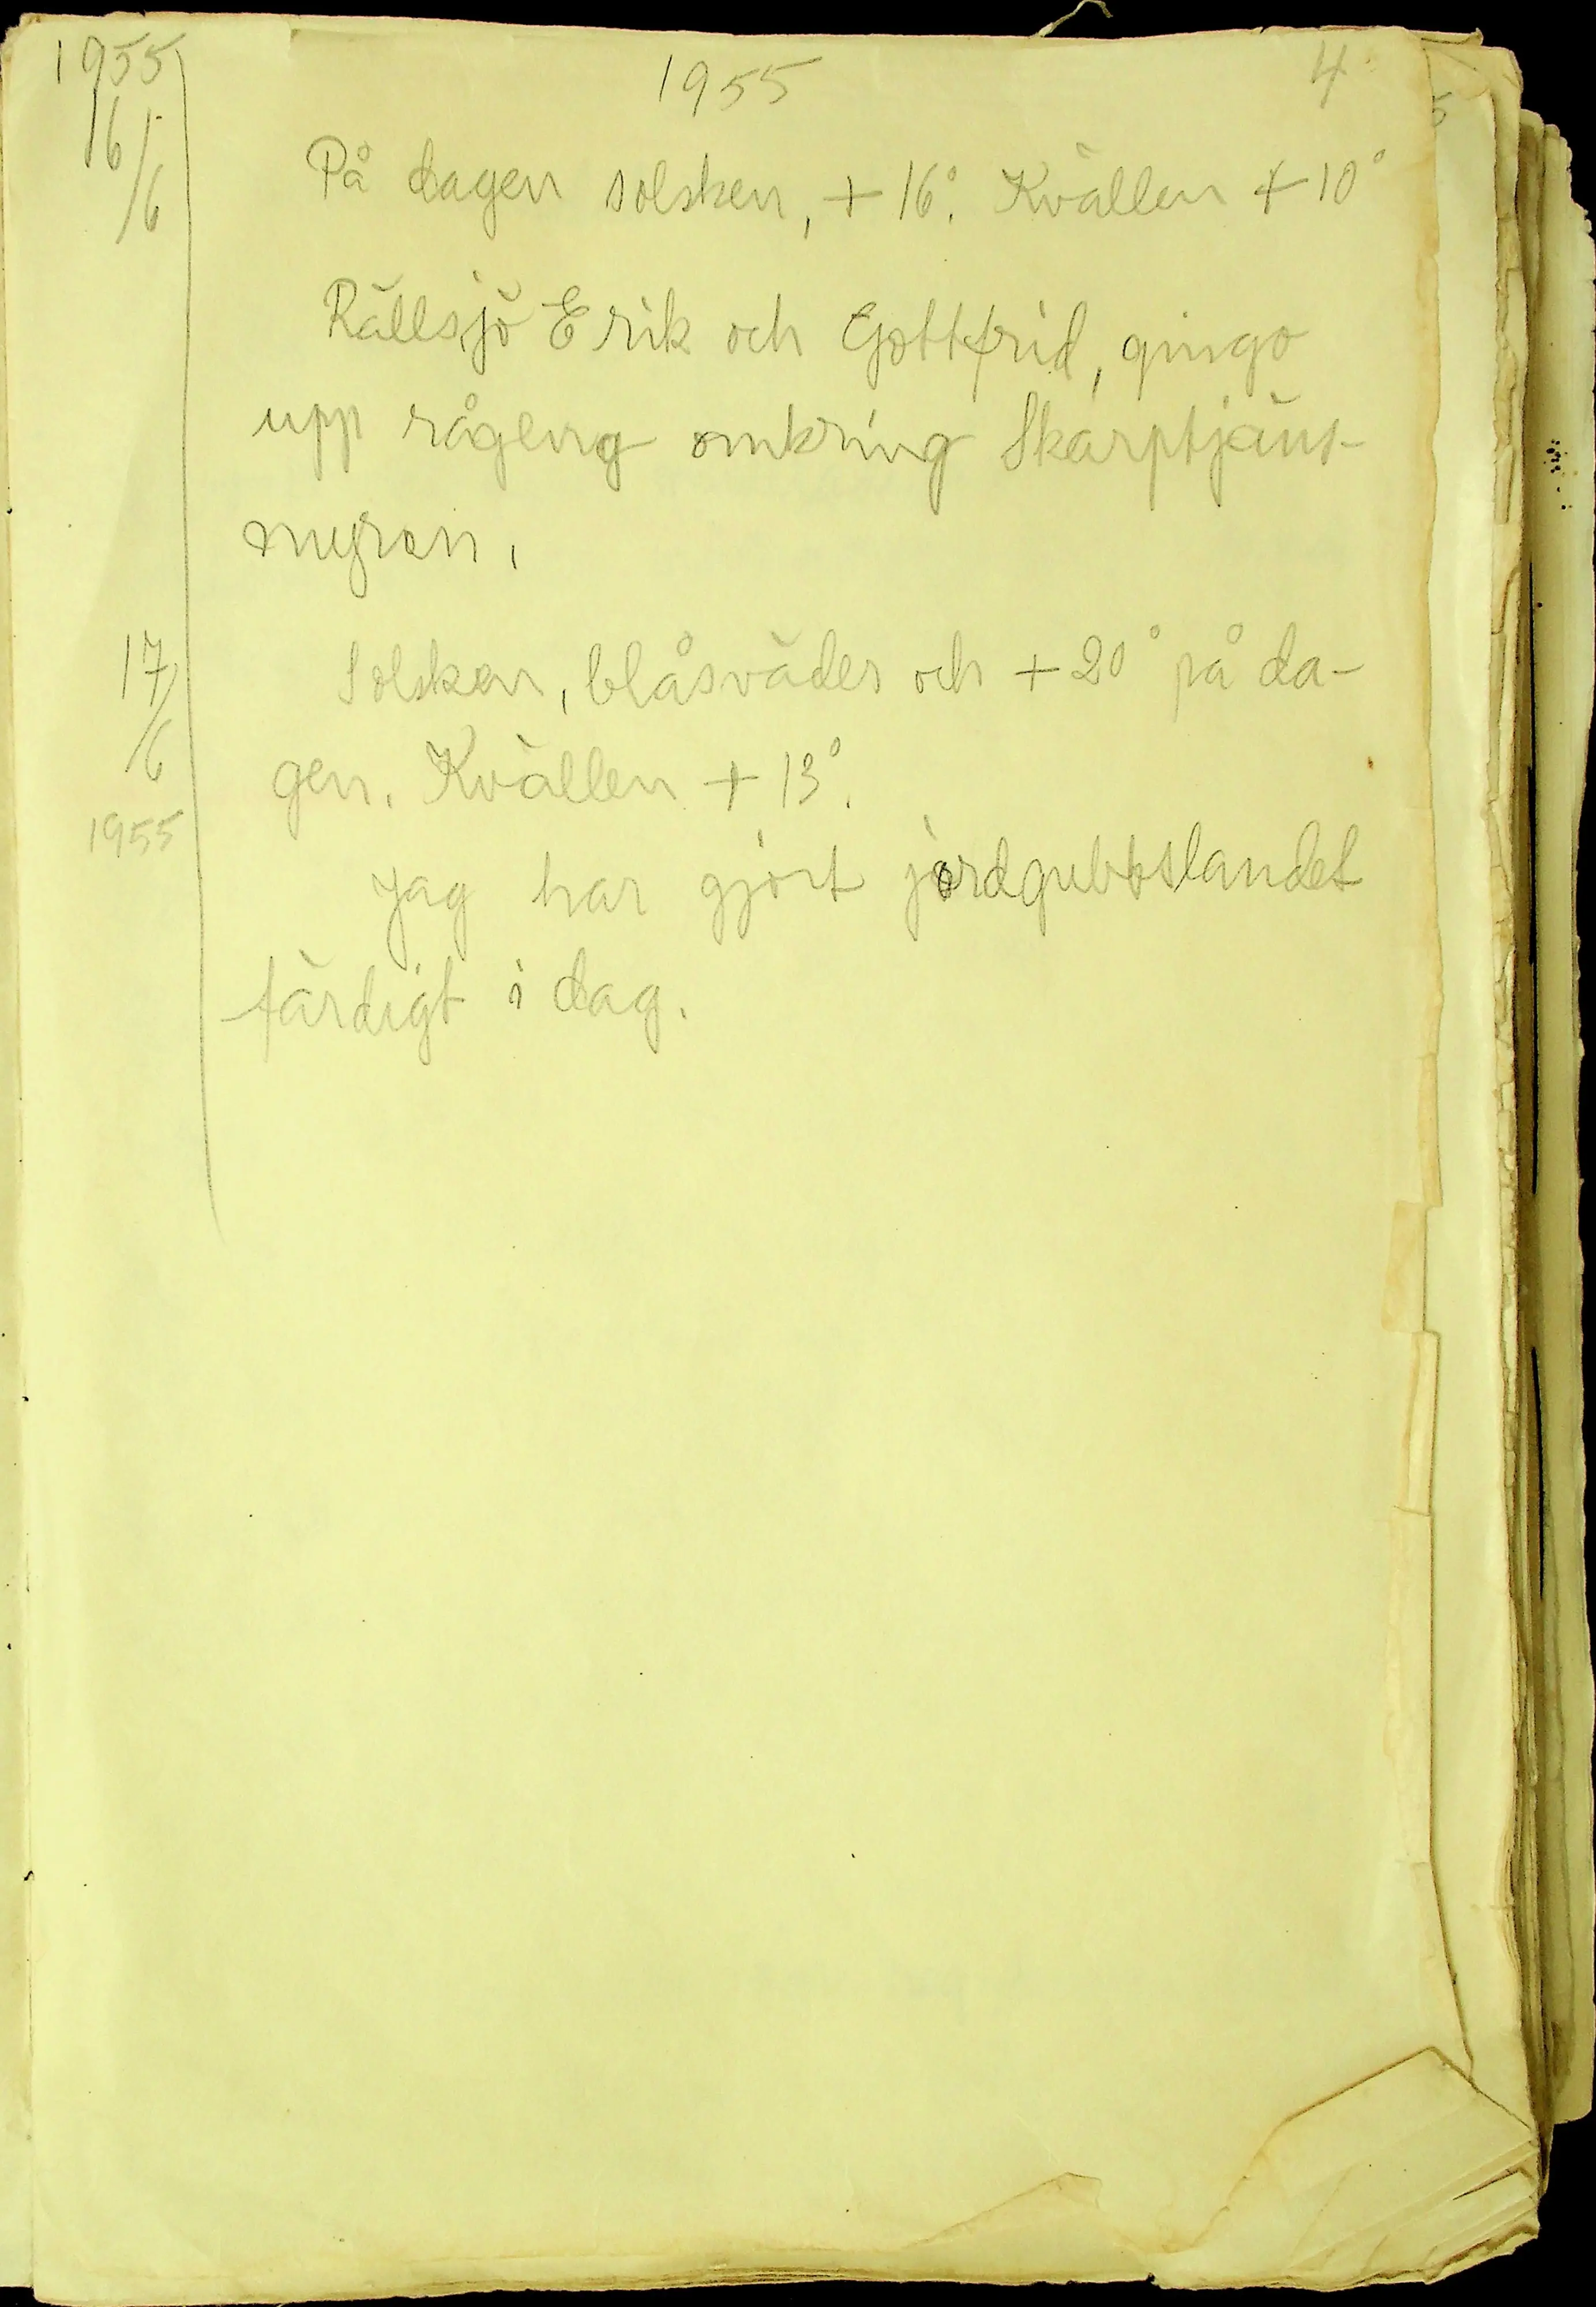 1955 1955 4
16/6 På dagen solsken, + 16°. Kvällen + 10°
Rällsjö Erik och Gottfrid, gingo
upp rågeng omkring Skarptjäns-
myren.
17/6 Solsken, blåsväder och + 20° på da-
gen. Kvällen + 13°.
1955
Jag har gjort jordgubbslandet
färdigt i dag.